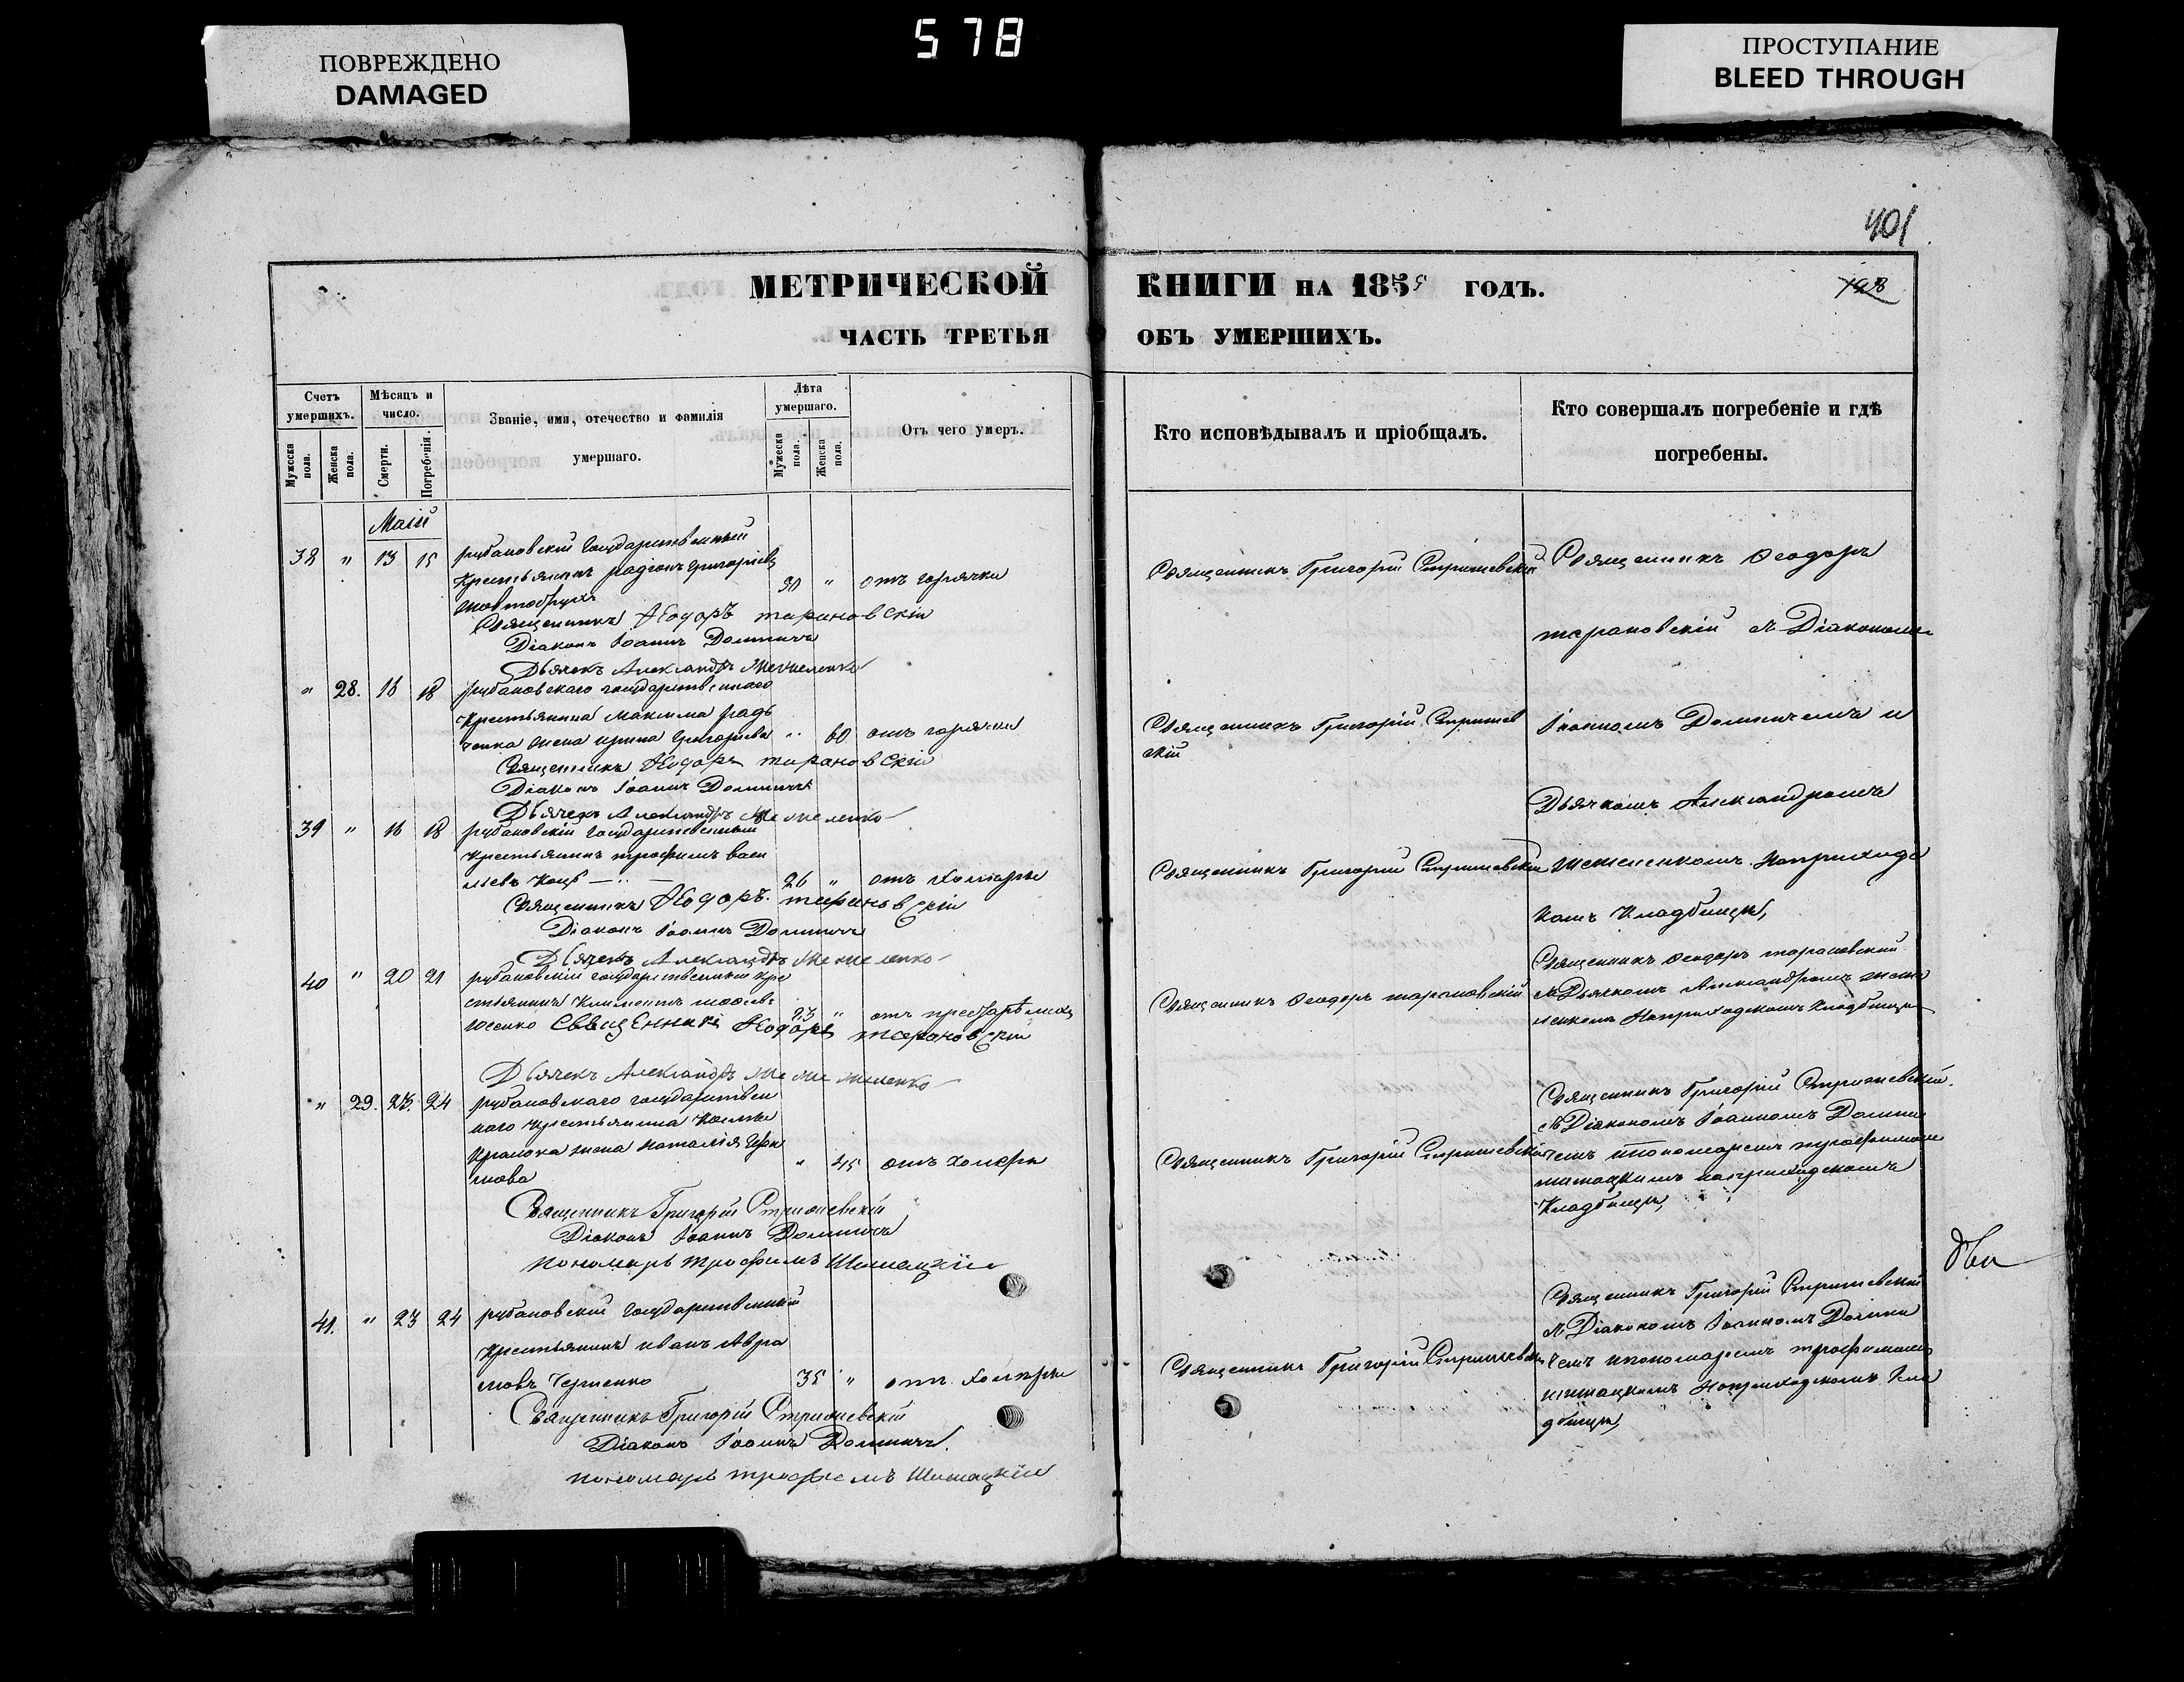 ПОВРЕЖДЕНО
DAMAGED
578
ПРОСТУПАНИЕ
BLEED THROUGH
401
МЕТРИЧЕСКОЙ КНИГИ НА 1855 ГОДЪ.
198
ЧАСТЬ ТРЕТЬЯ ОБЪ УМЕРШИХЪ.
Счетъ умершихъ.
Мужеска пола.
Женска пола.
Мѣсяцъ и число.
Смерти.
Погребенія.
Званіе, имя, отечество и фамилія умершаго.
Лѣта умершаго.
Мужеска пола.
Женска пола.
Отъ чего умеръ.
Кто исповѣдывалъ и пріобщалъ.
Кто совершалъ погребеніе и гдѣ погребены.
Маій
38 " 13 15 рубановскій государственный
крестьянинъ радіонъ григорьевъ
30 " отъ горячки
Священникъ Ѳеодоръ тарановскій
Діаконъ Іоаннъ Долиничъ
Дьячекъ Александръ
Священникъ Григорій Стрижевскій
Священникъ Ѳеодоръ
тарановскій съ Діакономъ
" 28. 16 18 рубановскаго государственнаго
крестьянина максима радь
ченка жена ирина григорьева " 60 отъ горячки
Священникъ Ѳеодоръ тарановскій
Діаконъ Іоаннъ Долиничъ
Дьячекъ Александръ
Священникъ Григорій Стрижев
скій
Іоанномъ Долиничемъ и
Дьячкомъ Александромъ
39 " 16 18 рубановскій государственный
крестьянинъ трофимъ васи
льевъ Коцб 26 " отъ холеры
Священникъ Ѳеодоръ тарановскій
Діаконъ Іоаннъ Долиничъ
Дьячекъ Александръ
Священникъ Григорій Стрижевскій
наприходс
комъ кладбищѣ,
40 " 20 21 рубановскій государственный кре
стьянинъ Климентъ
23 " отъ
Священникъ Ѳеодоръ тарановскій
Дьячекъ Александръ
Священникъ Ѳеодоръ тарановскій
Священникъ Ѳеодоръ тарановскій
съ Дьячкомъ Александромъ
наприходскомъ кладбищѣ
" 29. 23. 24 рубановскаго государствен
наго крестьянина
жена наталія
" 45 отъ холеры
Священникъ Григорій Стрижевскій
Діаконъ Іоаннъ Долиничъ
пономарь трофимъ Шишацкій
Священникъ Григорій Стрижевскій
Священникъ Григорій Стрижевскій
съ Діакономъ Іоанномъ Долини
чемъ ипономаремъ трофимомъ
шишацкимъ наприходскомъ
кладбищѣ,
41. " 23 24 рубановскій государственный
крестьянинъ иванъ Авра
мовъ Черненко 35 " отъ холеры
Священникъ Григорій Стрижевскій
Діаконъ Іоаннъ Долиничъ.
пономарь трофимъ Шишацкій
Священникъ Григорій Стрижевскій
Священникъ Григорій Стрижевскій
съ Діакономъ Іоанномъ Долини
чемъ ипономаремъ трофимомъ
шишацкимъ наприходскомъ кла
дбищѣ,